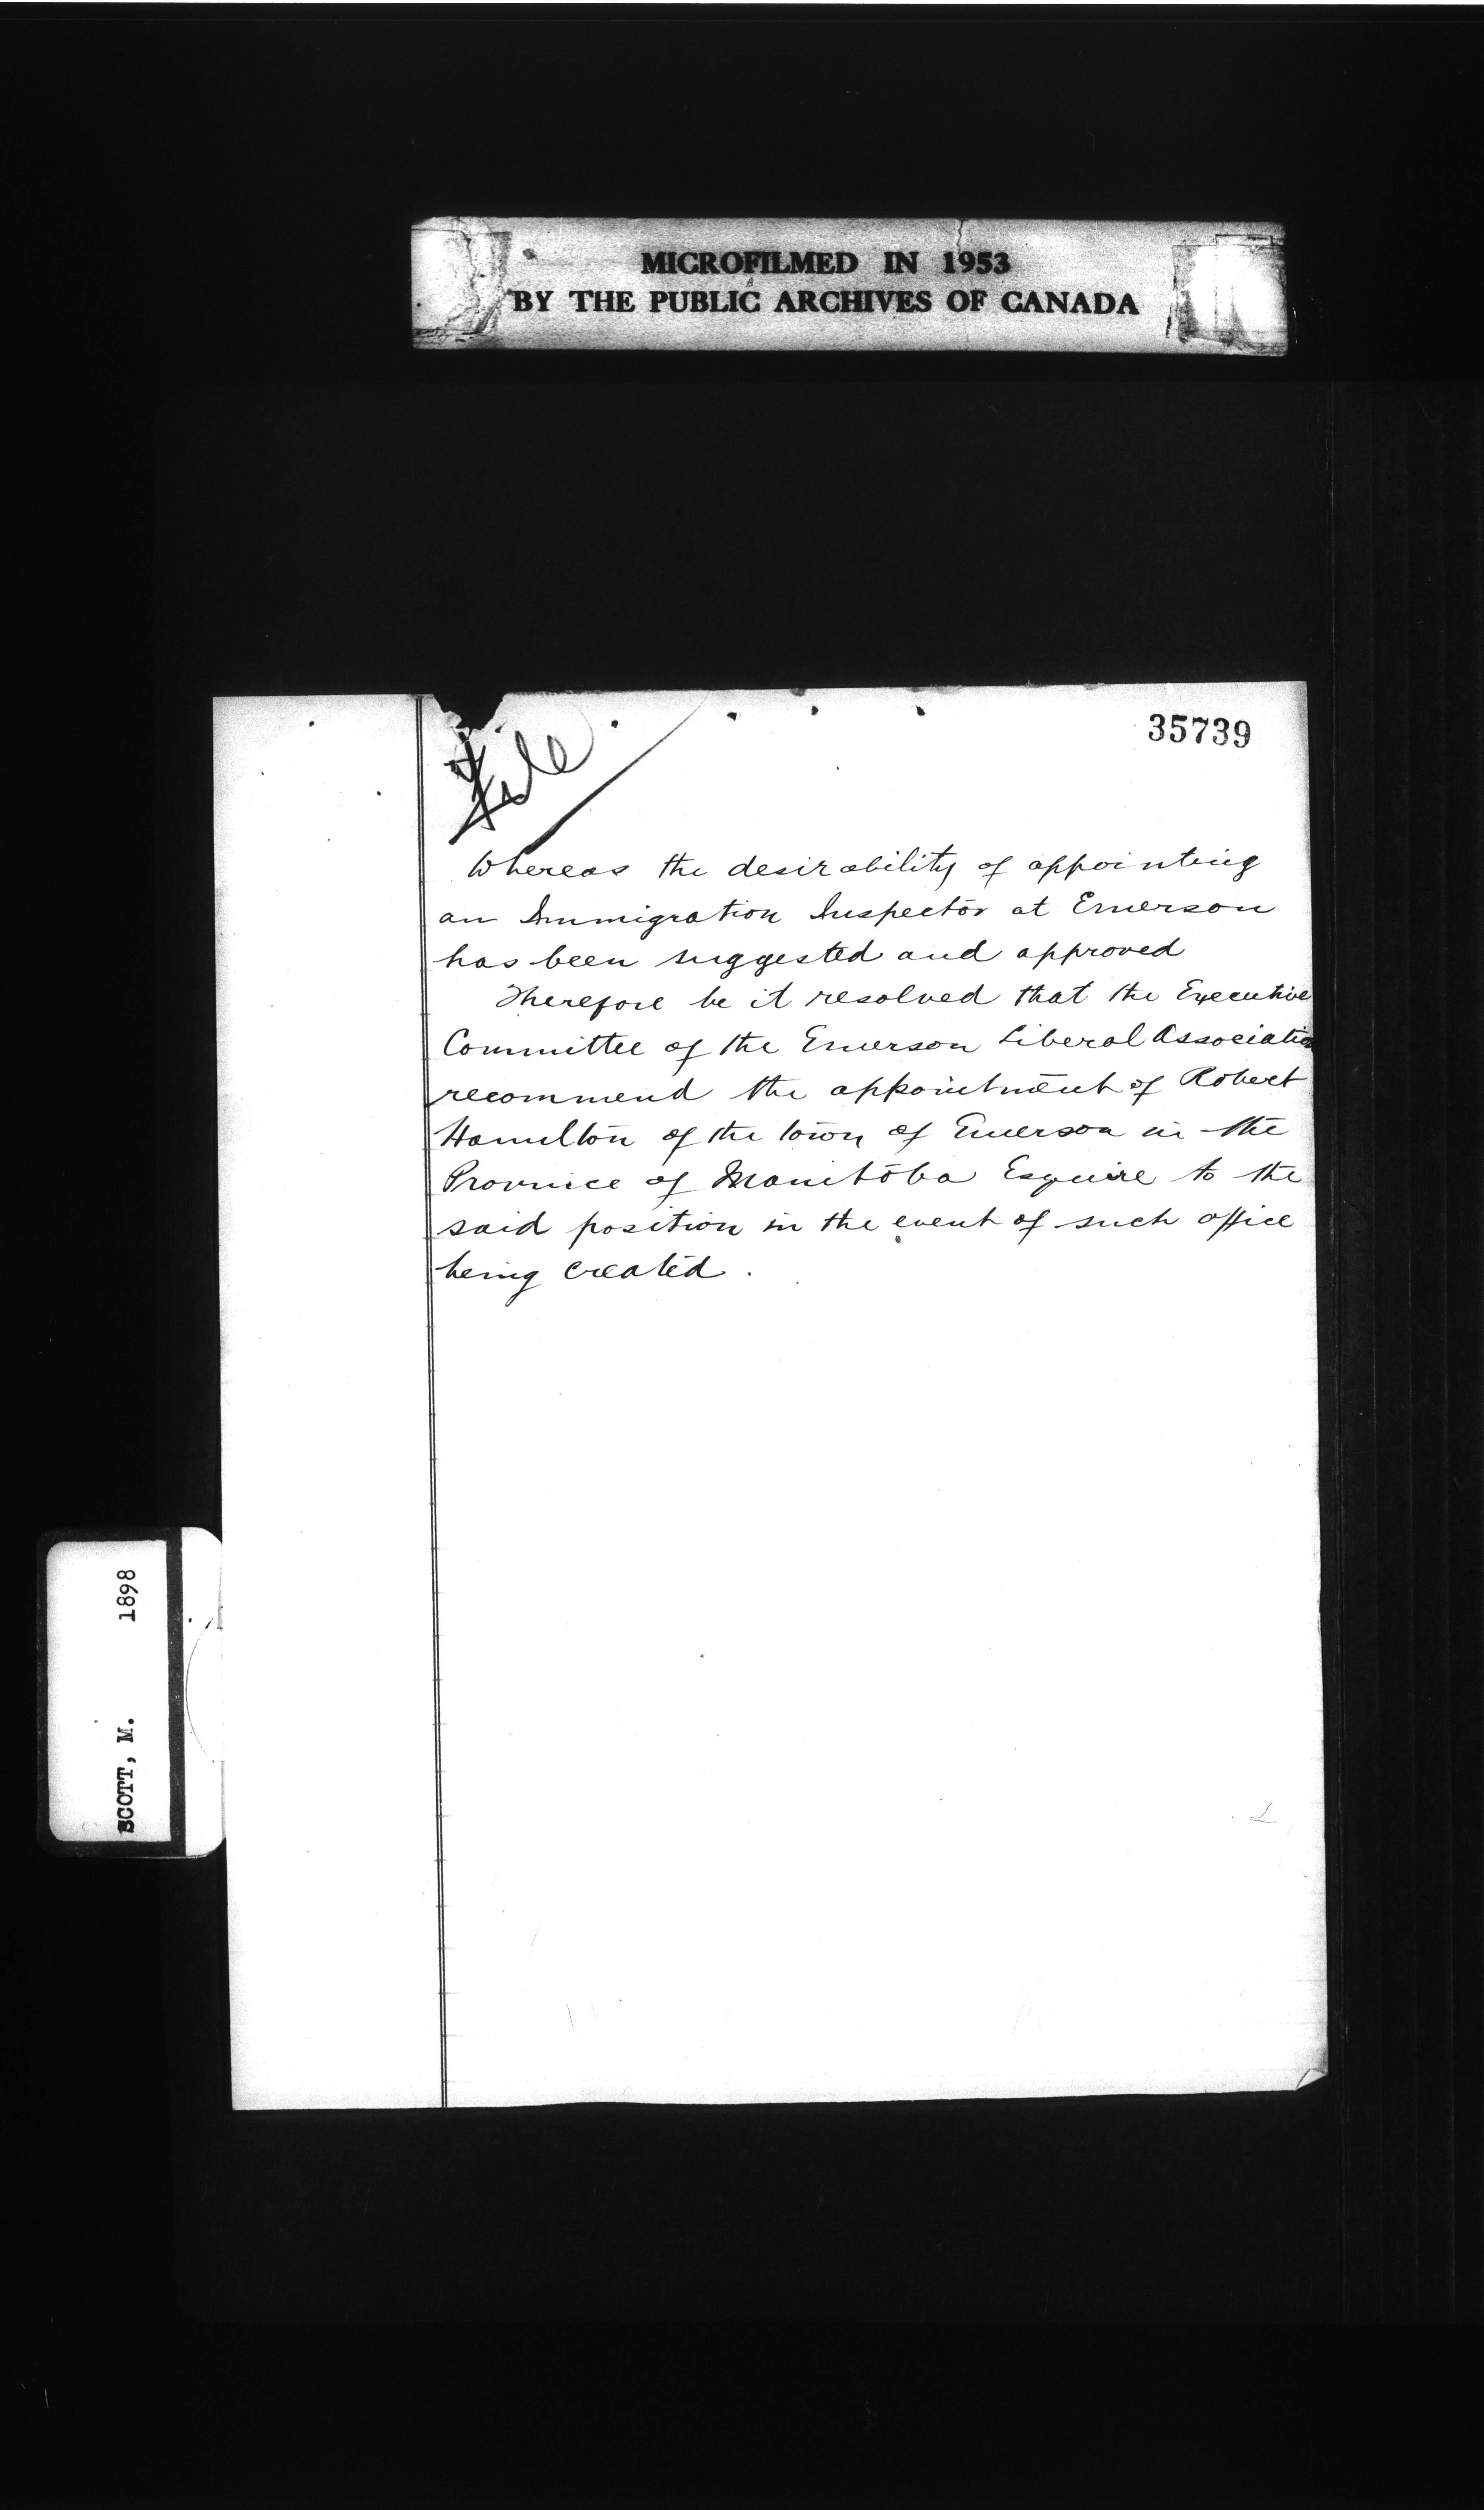 MICROFILMED IN 1953
BY THE PUBLIC ARCHIVES OF CANADA
35739
File
Whereas the desirability of appointing
an Immigration Inspector at Emerson
has been suggested and approved
Therefore be it resolved that the Executive
Committee of the Emerson Liberal Association
recommend the appointment of Robert
Hamilton of the town of Emerson in the
Province of Manitoba Esquire to the
said position in the event of such office
being created.
SCOTT, M. 1898